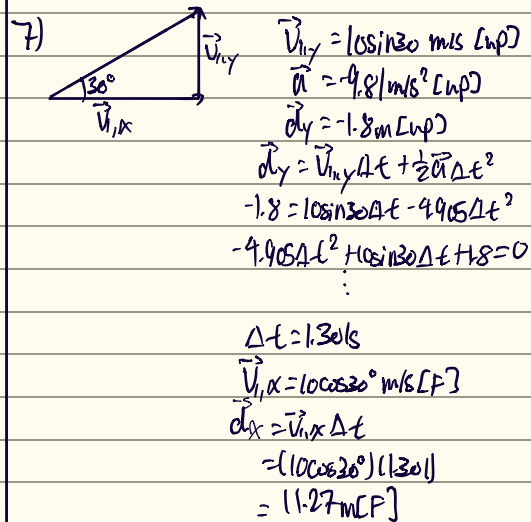 7)
30°
V⃗1,y
V⃗1,x
V⃗1,y = 10sin30 m/s [up]
a⃗ = -9.81m/s² [up]
d⃗y = -1.8m [up]
d⃗y = V⃗1,yΔt + ½a⃗Δt²
-1.8 = 10sin30Δt - 4.905Δt²
-4.905Δt² + 10sin30Δt + 1.8 = 0
⋮
Δt = 1.301s
V⃗1,x = 10cos30° m/s [F]
d⃗x = V⃗1,x Δt
= (10cos30°)(1.301)
= 11.27m[F]